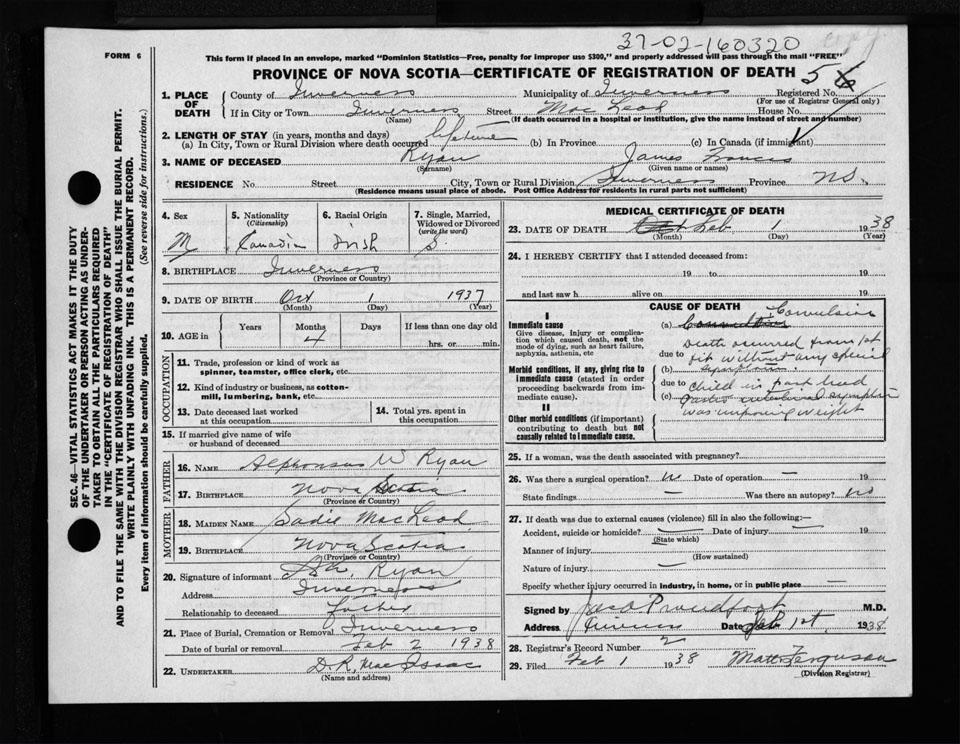 37-02-160320
FORM 6
This form if placed in an envelope, marked "Dominion Statistics—Free, penalty for improper use $300," and properly addressed will pass through the mail "FREE"
PROVINCE OF NOVA SCOTIA—CERTIFICATE OF REGISTRATION OF DEATH 5
1. PLACE OF DEATH
County of Inverness Municipality of Inverness Registered No.
(For use of Registrar General only)
If in City or Town Inverness Street MacLeod House No.
(Name) (If death occurred in a hospital or institution, give the name instead of street and number)
2. LENGTH OF STAY (in years, months and days)
(a) In City, Town or Rural Division where death occurred lifetime (b) In Province (c) In Canada (if immigrant)
3. NAME OF DECEASED Ryan James Francis
(Surname) (Given name or names)
RESIDENCE No. Street City, Town or Rural Division Inverness Province N.S.
(Residence means usual place of abode. Post Office Address for residents in rural parts not sufficient)
SEC. 46—VITAL STATISTICS ACT MAKES IT THE DUTY
OF THE UNDERTAKER OR PERSON ACTING AS UNDERTAKER TO OBTAIN ALL THE PARTICULARS REQUIRED
IN THE "CERTIFICATE OF REGISTRATION OF DEATH"
AND TO FILE THE SAME WITH THE DIVISION REGISTRAR WHO SHALL ISSUE THE BURIAL PERMIT.
WRITE PLAINLY WITH UNFADING INK. THIS IS A PERMANENT RECORD.
Every item of information should be carefully supplied. (See reverse side for instructions.)
4. Sex 5. Nationality (Citizenship) 6. Racial Origin 7. Single, Married, Widowed or Divorced (write the word)
M Canadian Irish S
8. BIRTHPLACE Inverness
(Province or Country)
9. DATE OF BIRTH Oct 1 1937
(Month) (Day) (Year)
10. AGE in Years Months Days If less than one day old
4 hrs. or min.
OCCUPATION
11. Trade, profession or kind of work as spinner, teamster, office clerk, etc.
12. Kind of industry or business, as cotton-mill, lumbering, bank, etc.
13. Date deceased last worked at this occupation
14. Total yrs. spent in this occupation
15. If married give name of wife or husband of deceased
FATHER
16. NAME Alphonsus W Ryan
17. BIRTHPLACE Nova Scotia
(Province or Country)
MOTHER
18. MAIDEN NAME Sadie MacLeod
19. BIRTHPLACE Nova Scotia
(Province or Country)
20. Signature of informant Ryan
Address Inverness
Relationship to deceased father
21. Place of Burial, Cremation or Removal Inverness
Date of burial or removal Feb 2 1938
22. UNDERTAKER D.R. MacIsaac
(Name and address)
MEDICAL CERTIFICATE OF DEATH
23. DATE OF DEATH Oct Feb 1 1938
(Month) (Day) (Year)
24. I HEREBY CERTIFY that I attended deceased from:
19 to 19
and last saw h alive on 19
CAUSE OF DEATH
I
Immediate cause
Give disease, injury or complication which caused death, not the mode of dying, such as heart failure, asphyxia, asthenia, etc
(a) Convulsion
Death occurred from 1st
due to fit without any special
Morbid conditions, if any, giving rise to immediate cause (stated in order proceeding backwards from immediate cause).
(b) symptoms.
due to child in past had
(c) Gastro intestinal symptoms
II
Other morbid conditions (if important) contributing to death but not causally related to immediate cause.
was improving weight
25. If a woman, was the death associated with pregnancy?
26. Was there a surgical operation? no Date of operation —
State findings — Was there an autopsy? no
27. If death was due to external causes (violence) fill in also the following:—
Accident, suicide or homicide? — Date of injury 19
(State which)
Manner of injury —
(How sustained)
Nature of injury —
Specify whether injury occurred in industry, in home, or in public place —
Signed by Jas A Proudfoot M.D.
Address Inverness Date Feb 1st, 1938
28. Registrar's Record Number 2
29. Filed Feb 1 1938 Matt Ferguson
(Division Registrar)